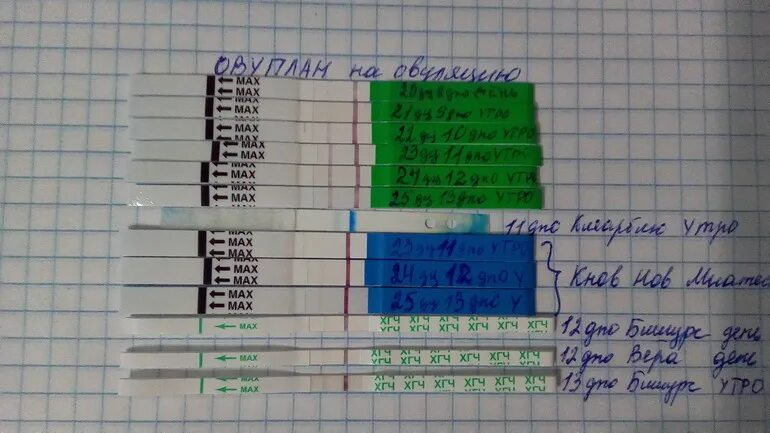 ОВУПЛАН на овуляцию
MAX
MAX 20 дц 8 дпо день
MAX
MAX 21 дц 9 дпо УТРО
MAX
MAX 22 дц 10 дпо УТРО
MAX
MAX 23 дц 11 дпо УТРО
MAX
MAX 24 дц 12 дпо УТРО
MAX
MAX 25 дц 13 дпо УТРО
11 дпо Клеарблю Утро
MAX
MAX 23 дц 11 дпо УТРО
MAX
MAX 24 дц 12 дпо У
MAX
MAX 25 дц 13 дпо У
Кнов Нов
MAX ХГЧ ХГЧ ХГЧ ХГЧ ХГЧ ХГЧ 12 дпо Бишурс день
MAX ХГЧ ХГЧ ХГЧ ХГЧ ХГЧ ХГЧ 12 дпо Вера день
MAX ХГЧ ХГЧ ХГЧ ХГЧ ХГЧ ХГЧ 13 дпо Бишурс УТРО